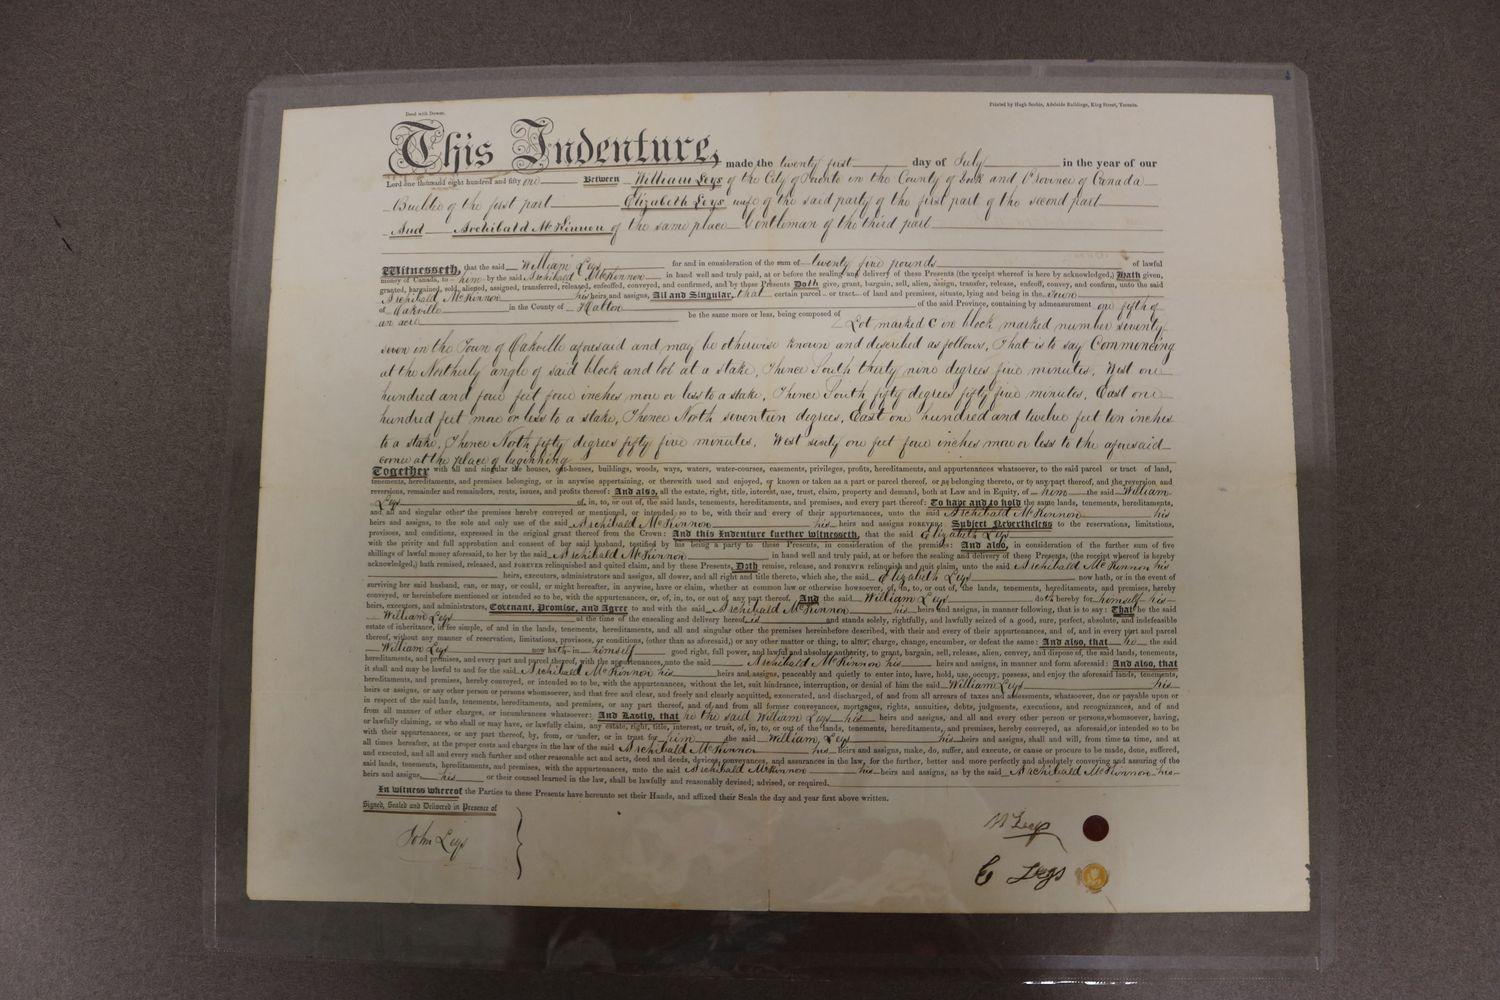 Deed with Dower.
Printed by Hugh Scobie, Adelaide Buildings, King Street, Toronto.
This Indenture, made the twenty first day of July in the year of our
Lord one thousand eight hundred and fifty one Between William Leys of the City of Toronto in the County of York and Province of Canada
Builder of the first part Elizabeth Leys wife of the said party of the first part of the second part
And Archibald McKinnon of the same place Gentleman of the third part
Witnesseth, that the said William Leys for and in consideration of the sum of twenty five pounds of lawful
money of Canada, to him by the said Archibald McKinnon in hand well and truly paid, at or before the sealing and delivery of these Presents (the receipt whereof is here by acknowledged,) Hath given,
granted, bargained, sold, aliened, assigned, transferred, released, enfeoffed, conveyed, and confirmed, and by these Presents Doth give, grant, bargain, sell, alien, assign, transfer, release, enfeoff, convey, and confirm, unto the said
Archibald McKinnon his heirs and assigns, All and Singular, that certain parcel or tract of land and premises, situate, lying and being in the Town
of Oakville in the County of Halton of the said Province, containing by admeasurement one fifth of
an acre be the same more or less, being composed of Lot marked C in block marked number seventy
seven in the Town of Oakville aforesaid and may be otherwise known and described as follows, That is to say Commencing
at the Northerly angle of said block and lot at a stake, Thence South thirty nine degrees five minutes, West one
hundred and four feet four inches more or less to a stake, Thence South fifty degrees fifty five minutes, East one
hundred feet more or less to a stake, Thence North seventeen degrees, East one hundred and twelve feet ten inches
to a stake, Thence North fifty degrees fifty five minutes, West sixty one feet four inches more or less to the aforesaid
corner at the place of beginning
Together with all and singular the houses, out-houses, buildings, woods, ways, waters, water-courses, easements, privileges, profits, hereditaments, and appurtenances whatsoever, to the said parcel or tract of land,
tenements, hereditaments, and premises belonging, or in anywise appertaining, or therewith used and enjoyed, or known or taken as a part or parcel thereof, or as belonging thereto, or to any part thereof, and the reversion and
reversions, remainder and remainders, rents, issues, and profits thereof: And also, all the estate, right, title, interest, use, trust, claim, property and demand, both at Law and in Equity, of him the said William
Leys of, in, to, or out of, the said lands, tenements, hereditaments, and premises, and every part thereof: To have and to hold the same lands, tenements, hereditaments,
and all and singular other the premises hereby conveyed or mentioned, or intended so to be, with their and every of their appurtenances, unto the said Archibald McKinnon his
heirs and assigns, to the sole and only use of the said Archibald McKinnon his heirs and assigns FOREVER: Subject Nevertheless to the reservations, limitations,
provisoes, and conditions, expressed in the original grant thereof from the Crown: And this Indenture further witnesseth, that the said Elizabeth Leys
with the privity and full approbation and consent of her said husband, testified by his being a party to these Presents, in consideration of the premises: And also, in consideration of the further sum of five
shillings of lawful money aforesaid, to her by the said Archibald McKinnon in hand well and truly paid, at or before the sealing and delivery of these Presents, (the receipt whereof is hereby
acknowledged,) hath remised, released, and FOREVER relinquished and quitted claim, and by these Presents, Doth remise, release, and FOREVER relinquish and quit claim, unto the said Archibald McKinnon his
heirs, executors, administrators and assigns, all dower, and all right and title thereto, which she, the said Elizabeth Leys now hath, or in the event of
surviving her said husband, can, or may, or could, or might hereafter, in anywise, have or claim, whether at common law or otherwise howsoever, of, in, to, or out of, the lands, tenements, hereditaments, and premises, hereby
conveyed, or hereinbefore mentioned or intended so to be, with the appurtenances, or, of, in, to, or out of any part thereof, And the said William Leys doth hereby for himself his
heirs, executors, and administrators, Covenant, Promise, and Agree to and with the said Archibald McKinnon his heirs and assigns, in manner following, that is to say: That he the said
William Leys at the time of the ensealing and delivery hereof is and stands solely, rightfully, and lawfully seized of a good, sure, perfect, absolute, and indefeasible
estate of inheritance, in fee simple, of and in the lands, tenements, hereditaments, and all and singular other the premises hereinbefore described, with their and every of their appurtenances, and of, and in every part and parcel
thereof, without any manner of reservation, limitations, provisoes, or conditions, (other than as aforesaid,) or any other matter or thing, to alter, charge, change, encumber, or defeat the same: And also, that he the said
William Leys now hath in himself good right, full power, and lawful and absolute authority, to grant, bargain, sell, release, alien, convey, and dispose of, the said lands, tenements,
hereditaments, and premises, and every part and parcel thereof, with the appurtenances, unto the said Archibald McKinnon his heirs and assigns, in manner and form aforesaid: And also, that
it shall and may be lawful to and for the said Archibald McKinnon his heirs and assigns, peaceably and quietly to enter into, have, hold, use, occupy, possess, and enjoy the aforesaid lands, tenements,
hereditaments, and premises, hereby conveyed, or intended so to be, with the appurtenances, without the let, suit hindrance, interruption, or denial of him the said William Leys his
heirs or assigns, or any other person or persons whomsoever, and that free and clear, and freely and clearly acquitted, exonerated, and discharged, of and from all arrears of taxes and assessments, whatsoever, due or payable upon or
in respect of the said lands, tenements, hereditaments, and premises, or any part thereof, and of and from all former conveyances, mortgages, rights, annuities, debts, judgments, executions, and recognizances, and of and
from all manner of other charges, or incumbrances whatsoever: And Lastly, that he the said William Leys his heirs and assigns, and all and every other person or persons whomsoever, having,
or lawfully claiming, or who shall or may have, or lawfully claim, any estate, right, title, interest, or trust, of, in, to, or out of the lands, tenements, hereditaments, and premises, hereby conveyed, as aforesaid, or intended so to be
with their appurtenances, or any part thereof, by, from, or under, or in trust for him the said William Leys his heirs and assigns, shall and will, from time to time, and at
all times hereafter, at the proper costs and charges in the law of the said Archibald McKinnon his heirs and assigns, make, do, suffer, and execute, or cause or procure to be made, done, suffered,
and executed, and all and every such further and other reasonable act and acts, deed and deeds, devices, conveyances, and assurances in the law, for the further, better and more perfectly and absolutely conveying and assuring of the
said lands, tenements, hereditaments, and premises, with the appurtenances, unto the said Archibald McKinnon his heirs and assigns, as by the said Archibald McKinnon his
heirs and assigns, his or their counsel learned in the law, shall be lawfully and reasonably devised, advised, or required.
In witness whereof the Parties to these Presents have hereunto set their Hands, and affixed their Seals the day and year first above written.
Signed, Sealed and Delivered in Presence of
John Leys
W Leys
E Leys